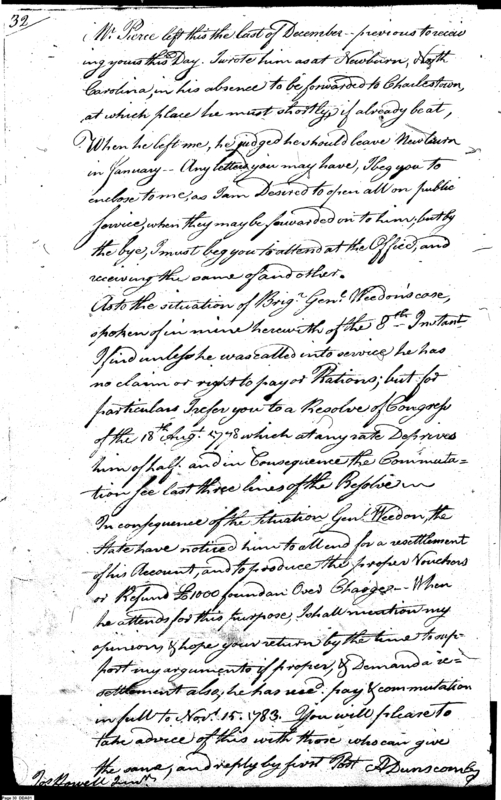 32
Mr. Pierce left this the last of December -- previous to receiv
ing yours this Day. I wrote him as at Newburn, North
Carolina, in his absence to be forwarded to Charlestown,
at which place he must shortly, if already be at,
When he left me, he judged he should leave Newburn
in January -- Any letters you may have, I beg you to
enclose to me, as I am Desired to open all on public
Service, when they may be forwarded on to him; but by
the bye, I must beg you to attend at the Office, and
receiving the same of and other.
As to the situation of Brigr. Genl. Weedon's case,
spoken of in mine herewith of the 8th Instant
I find unless he was called into service he has
no claim or right to pay or Rations; but for
particulars I refer you to a Resolve of Congress
of the 18th Augt. 1778 which at any rate Deprives
him of half, and in Consequence the Commuta-
tion see last three lines of the Resolve
In consequence of the Situation Genl. Weedon, the
State have noticed him to attend for a resettlement
of his Account, and to produce the proper Vouchers
or Refund £1000 found an Over Charge -- When
he attends for this purpose, I shall mention my
opinions, & hope your return by the time to sup-
port my arguments if proper, & Demand a re-
settlement also, he has recd. pay & commutation
in full to Novr. 15. 1783. You will please to
take advice of this with those who can give
the same, and reply by first Post A Dunscomb
Jos Howell Junr.
Page 30